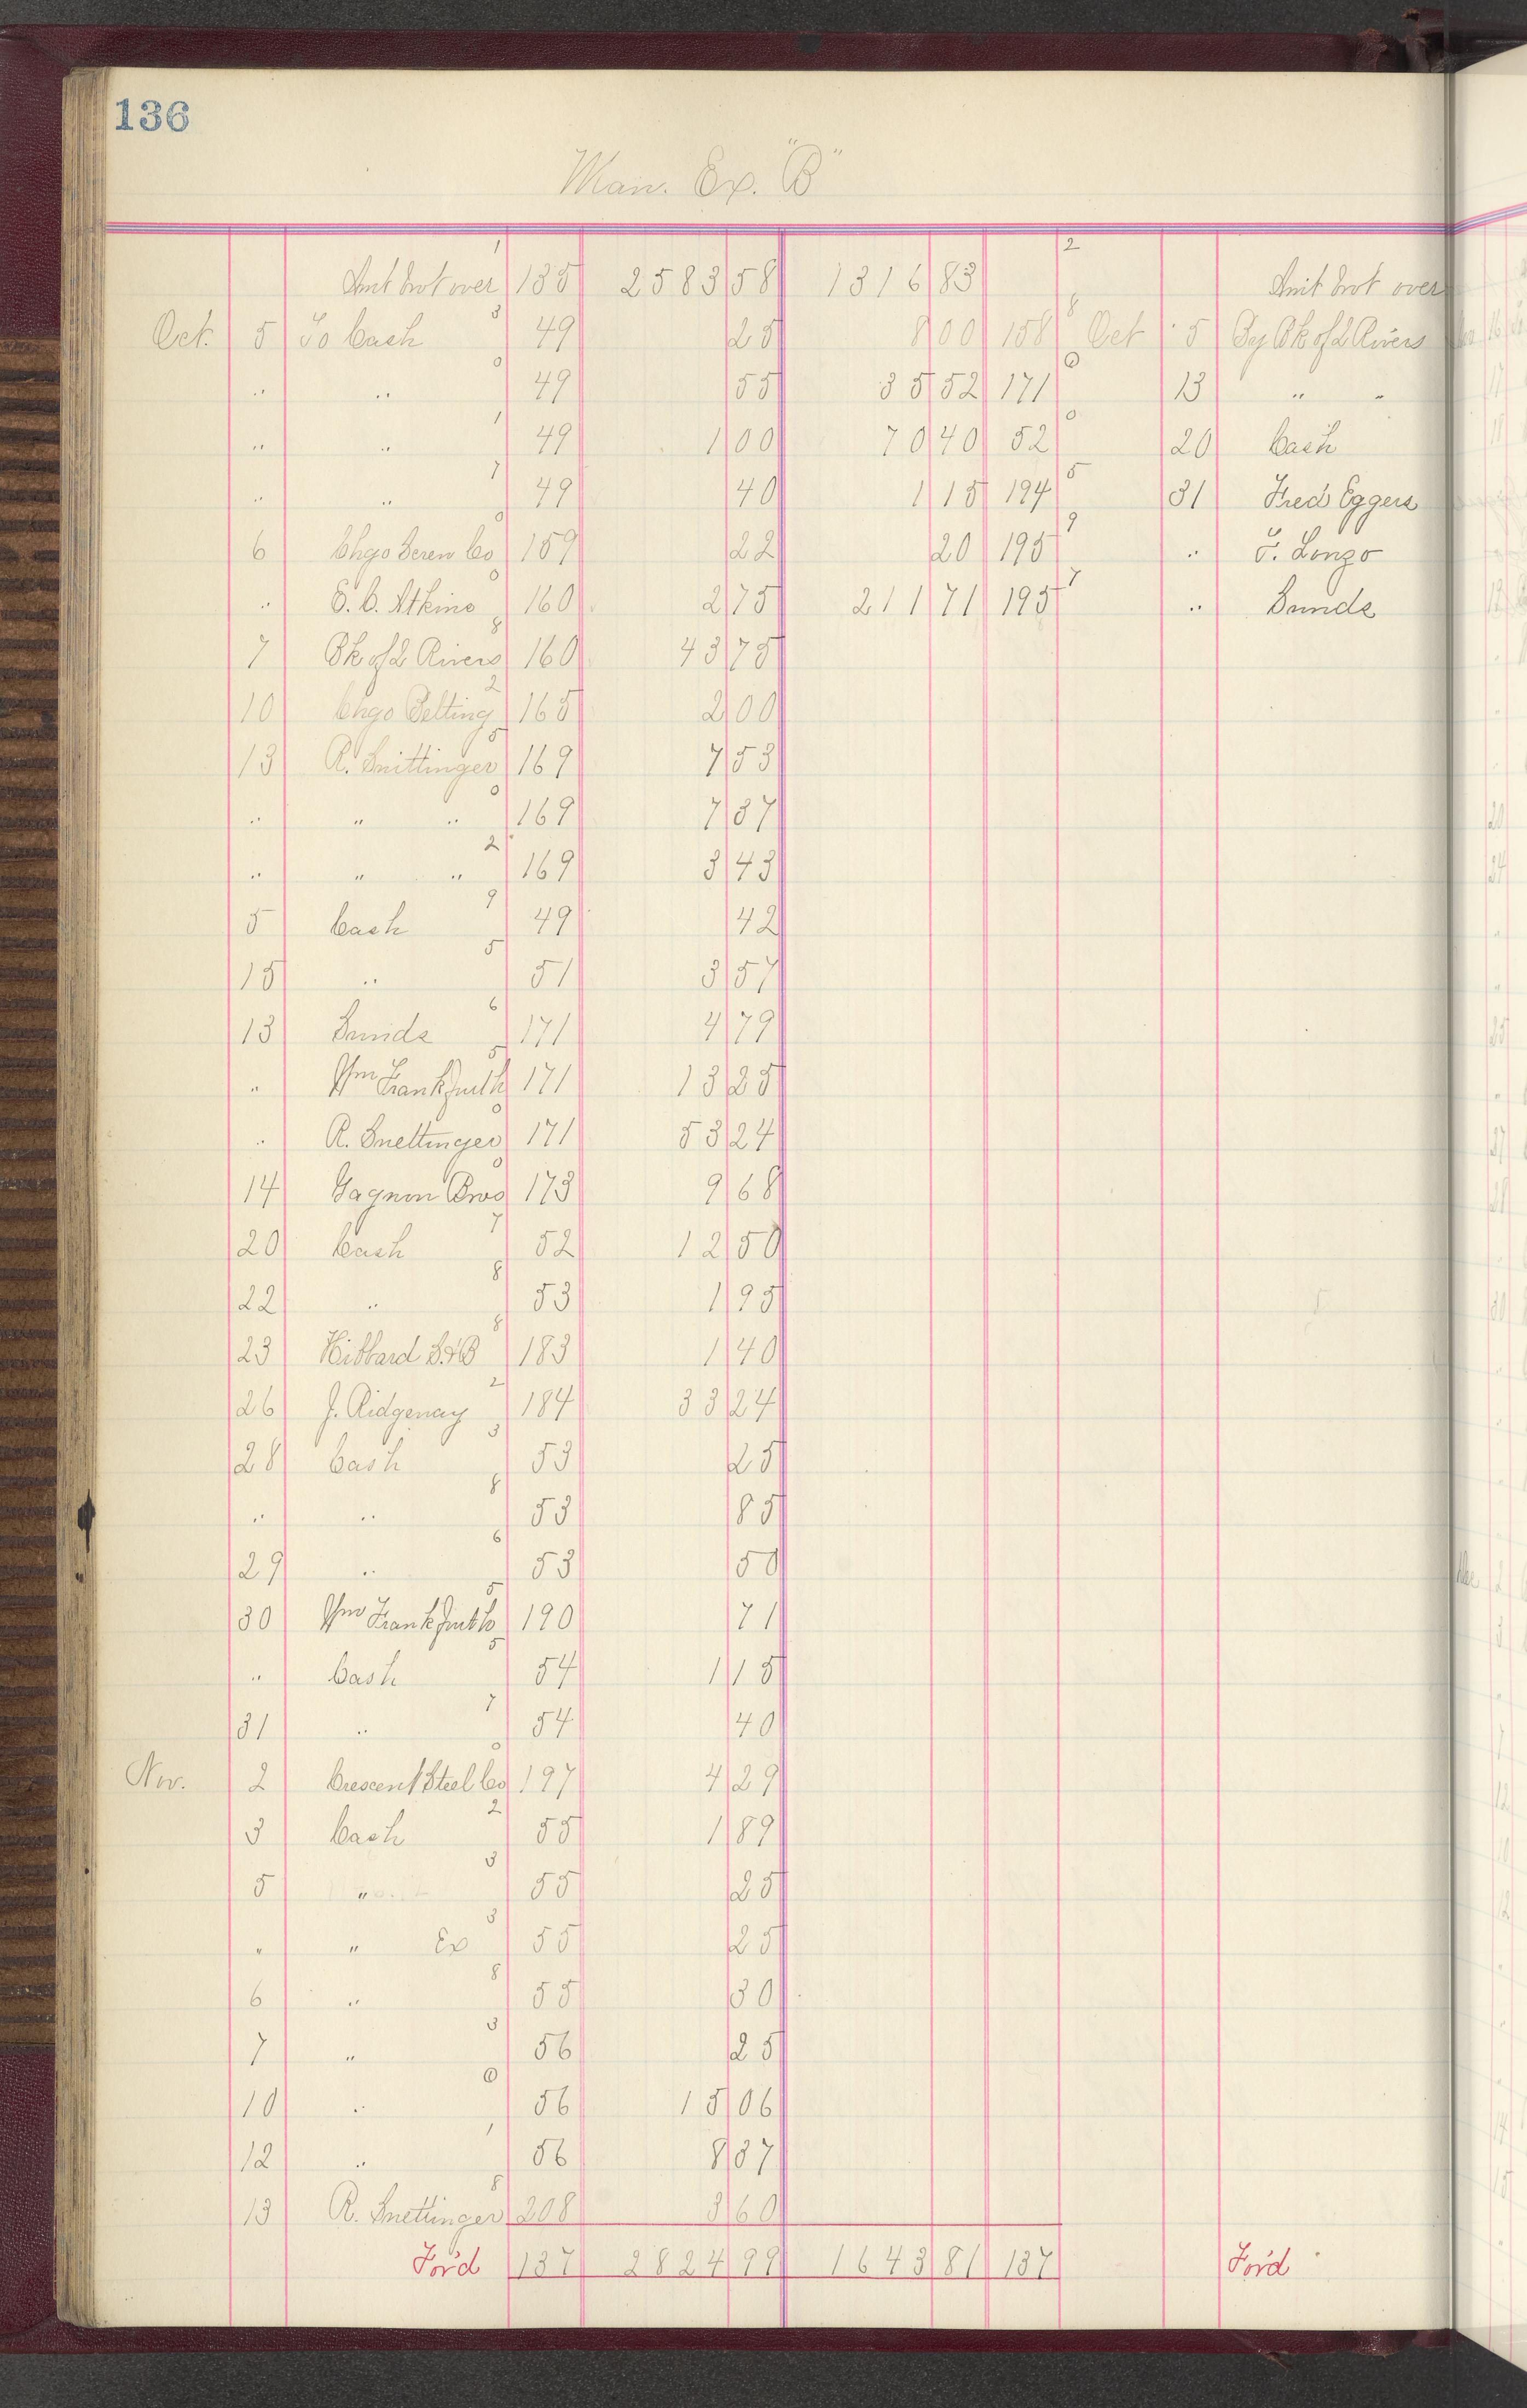 136
Man. Ex. "B"
1 2
Amt brot over 135 2583 58 1316 83 Amt brot over
3 8
Oct. 5 To Cash 49 25 8 00 158 Oct 5 By Bk of 2 Rivers
0 0
" " 49 55 35 52 171 13 " "
1 0
" " 49 1 00 70 40 52 20 Cash
7 5
" " 49 40 1 15 194 31 Fred Eggers
0 9
6 Chgo Screw Co 159 22 20 195 " F. Lonzo
0 7
" E. C. Atkins 160 2 75 211 71 195 " Sunds
8
7 Bk of 2 Rivers 160 43 75
2
10 Chgo Belting 165 2 00
5
13 R. Suettinger 169 7 53
0
" " " 169 7 37
2
" " " 169 3 43
9
5 Cash 49 42
5
15 " 51 3 57
6
13 Sunds 171 4 79
5
" Wm Frankfurth 171 13 25
0
" R. Suettinger 171 53 24
0
14 Gagnon Bros 173 9 68
7
20 Cash 52 12 50
8
22 " 53 1 95
8
23 Hibbard S. & B 183 1 40
2
26 J. Ridgeway 184 33 24
3
28 Cash 53 25
8
" " 53 85
6
29 " 53 50
5
30 Wm Frankfurth 190 71
5
" Cash 54 1 15
7
31 " 54 40
0
Nov. 2 Crescent Steel Co 197 4 29
2
3 Cash 55 1 89
3
5 " 55 25
3
" " Ex 55 25
8
6 " 55 30
3
7 " 56 25
0
10 " 56 15 06
1
12 " 56 8 37
8
13 R. Suettinger 208 3 60
For'd 137 2824 99 1643 81 137 For'd